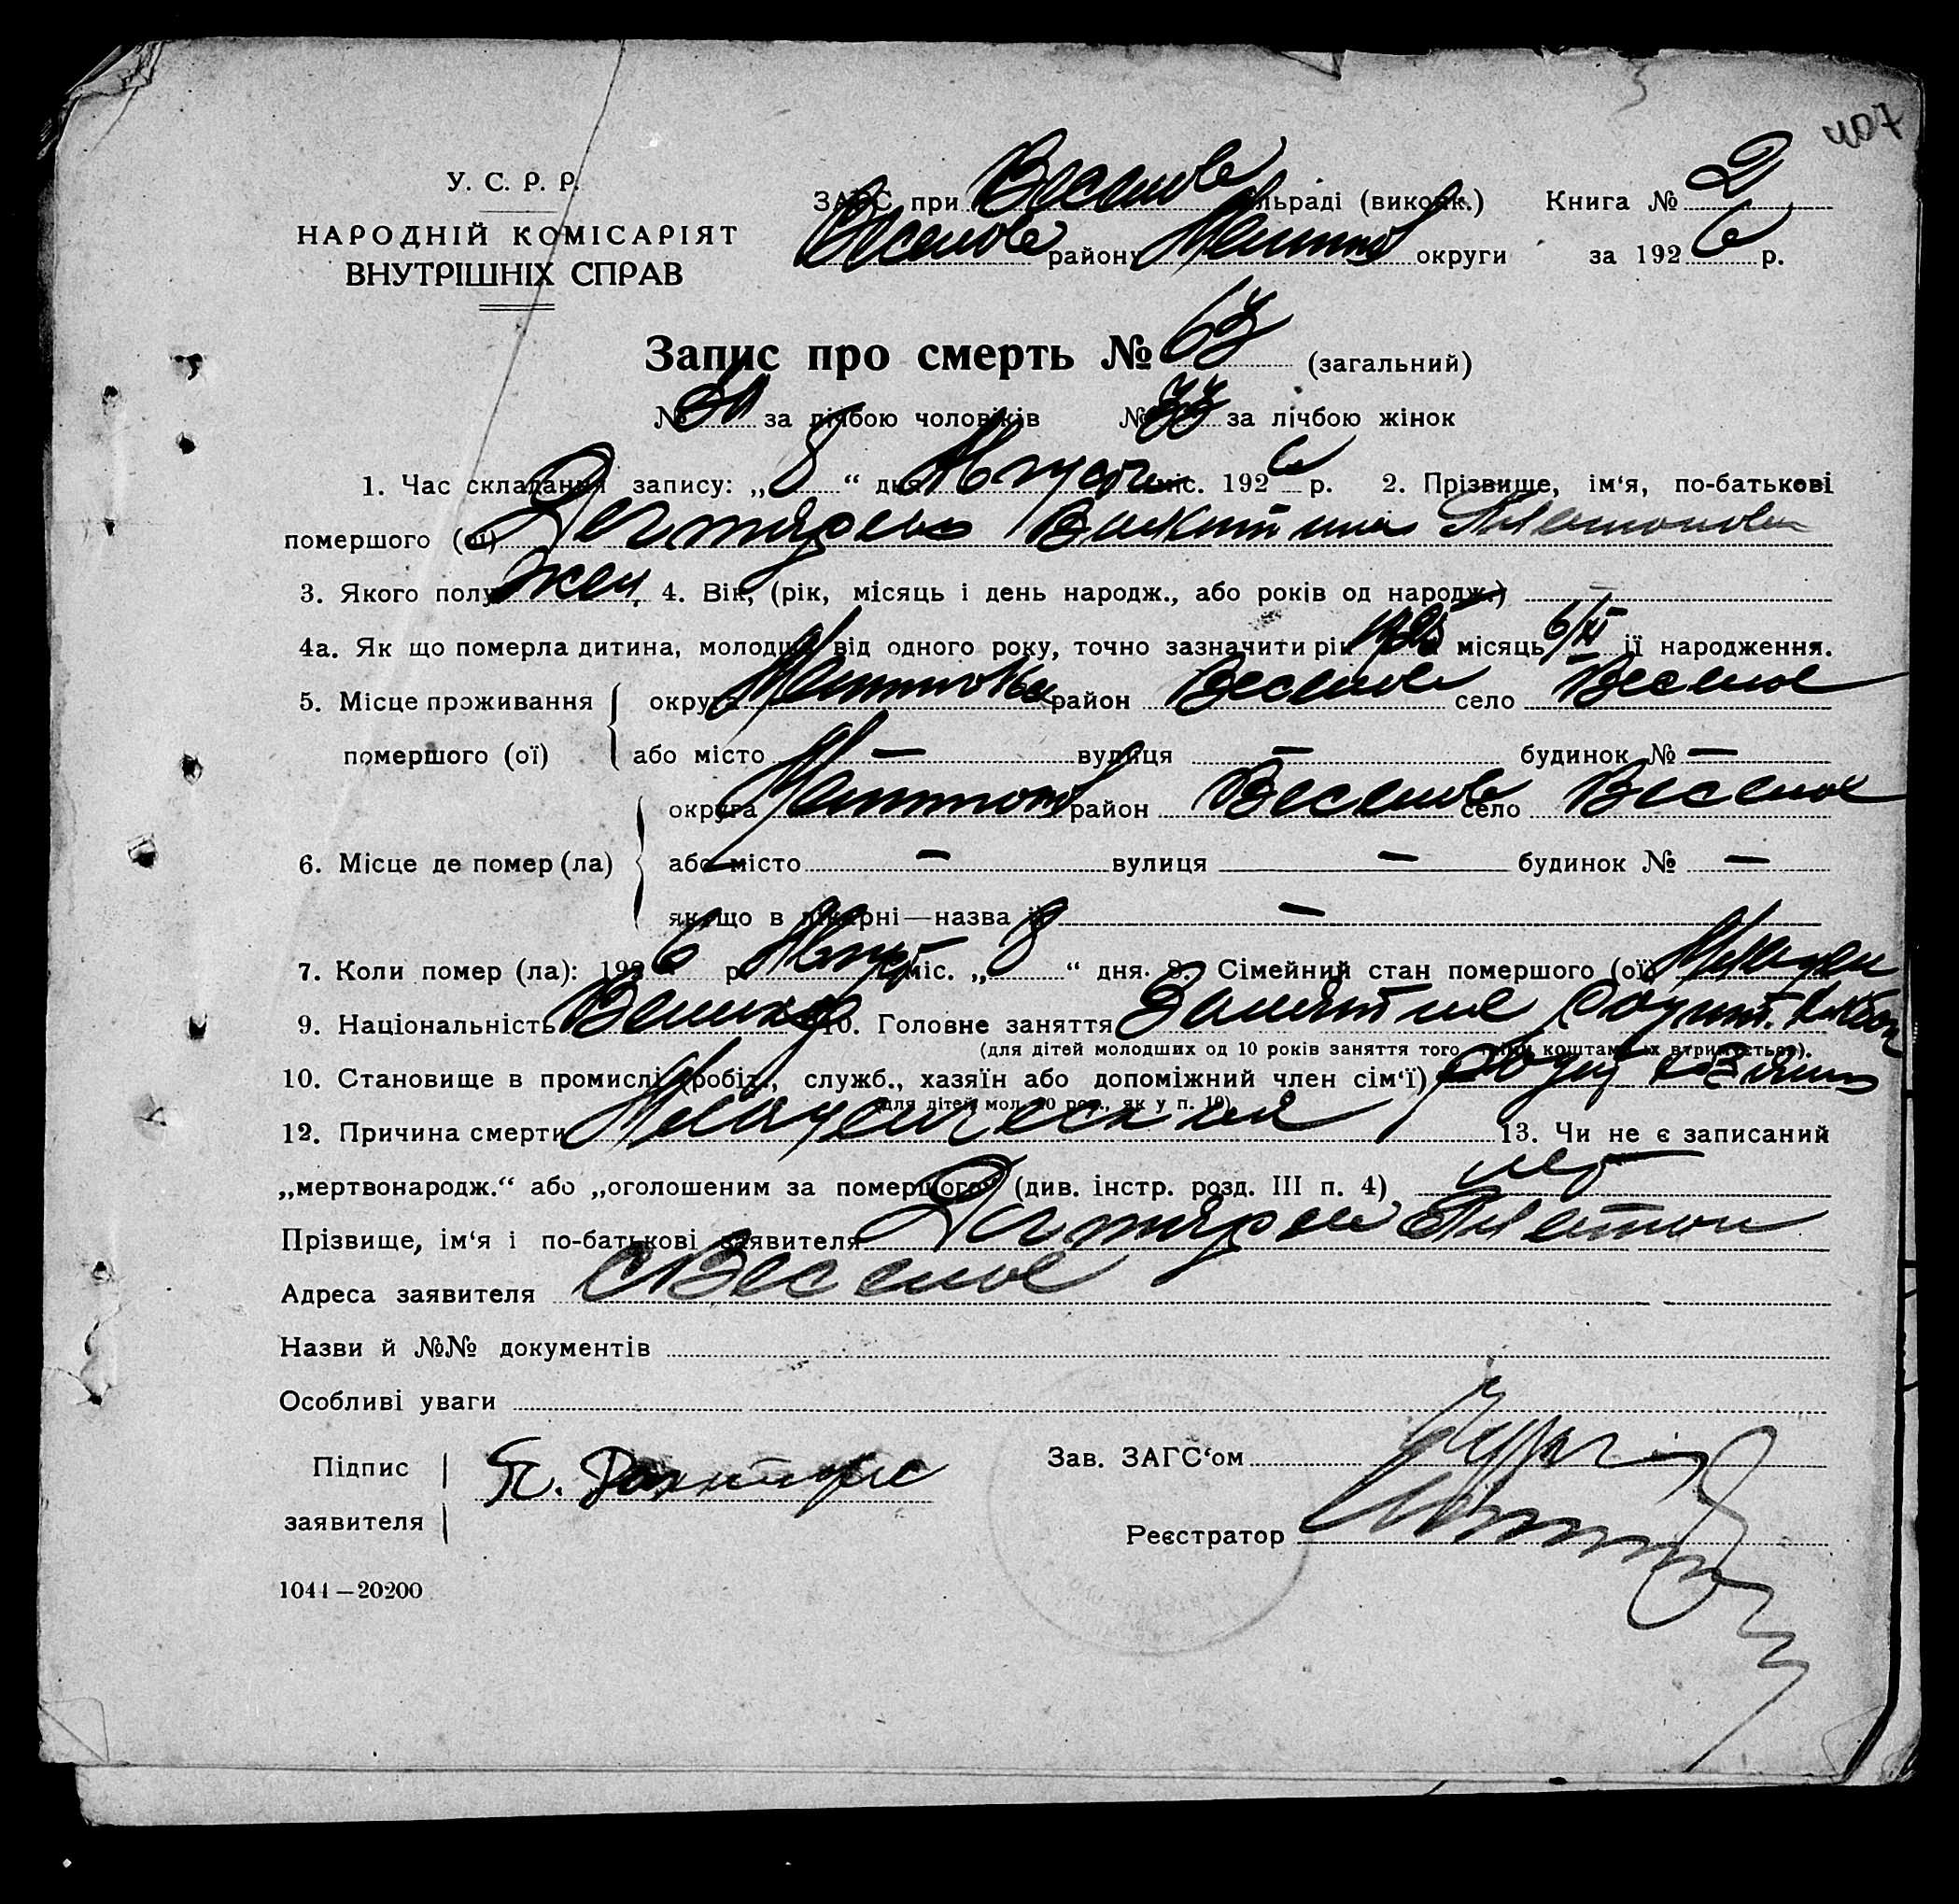 407
У. С. Р. Р.
НАРОДНІЙ КОМІСАРІЯТ
ВНУТРІШНІХ СПРАВ
ЗАГС при Веселов сільраді (виконк.) Книга № 2
Веселов району Мелитоп округи за 1926 р.
Запис про смерть № (загальний)
№ за лічбою чоловіків № за лічбою жінок
1. Час складання запису: „8“ дня Августа міс. 1926 р. 2. Прізвище, ім‘я, по-батькові
помершого (ої) Валентина Платоновна
3. Якого полу жен, 4. Вік, (рік, місяць і день народж., або років од народж.)
4а. Як що померла дитина, молодша від одного року, точно зазначити рік 1925 місяць 6/XI її народження.
5. Місце проживання округа район Веселов село Веселое
помершого (ої) або місто — вулиця — будинок № —
округа Мелитоп район Веселов село Веселое
6. Місце де помер (ла) або місто — вулиця — будинок № —
якщо в лікарні—назва її —
7. Коли помер (ла): 1926 р. Август міс. „8“ дня. 8. Сімейний стан помершого (ої) Младен
9. Національність 10. Головне заняття Занятие
(для дітей молодших од 10 років заняття того, чиїм коштами їх втримується).
10. Становище в промислі (робіт., служб., хазяїн або допоміжний член сім‘ї)
(для дітей мол. 10 рок., як у п. 10)
12. Причина смерти Младенческая 13. Чи не є записаний
„мертвонародж.“ або „оголошеним за помершого“ (див. інстр. розд. III п. 4) нет
Прізвище, ім‘я і по-батькові заявителя Платон
Адреса заявителя с Веселое
Назви й №№ документів
Особливі уваги
Підпис
заявителя П.
Зав. ЗАГС‘ом
Реєстратор
1044—20200